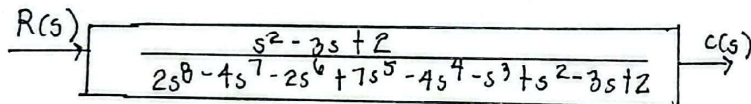 R(s)
s² - 3s + 2
2s⁸ - 4s⁷ - 2s⁶ + 7s⁵ - 4s⁴ - s³ + s² - 3s + 2
C(s)